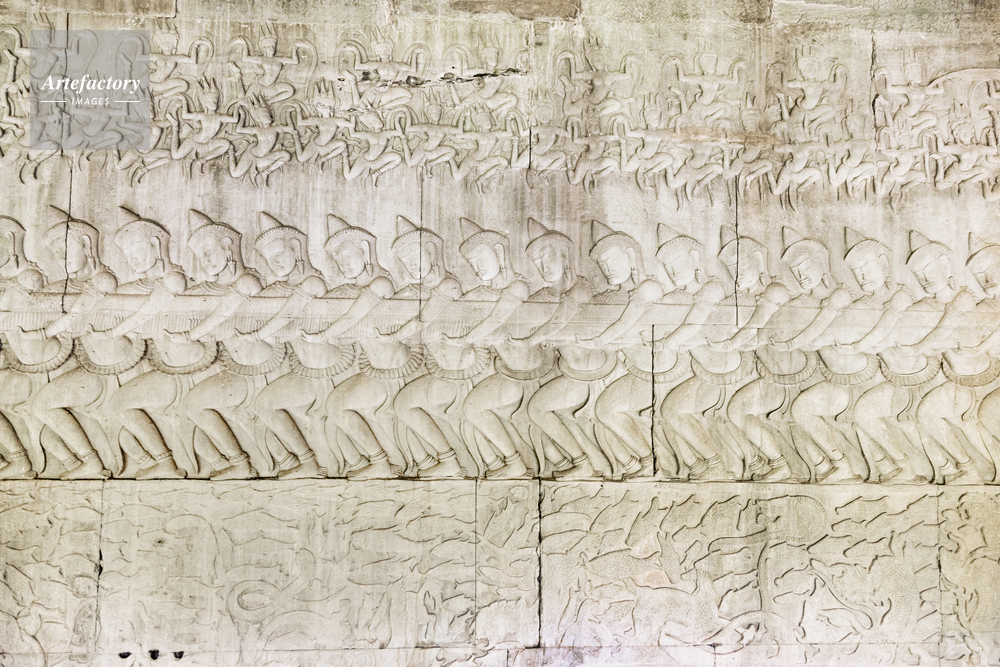 Artefactory
IMAGES